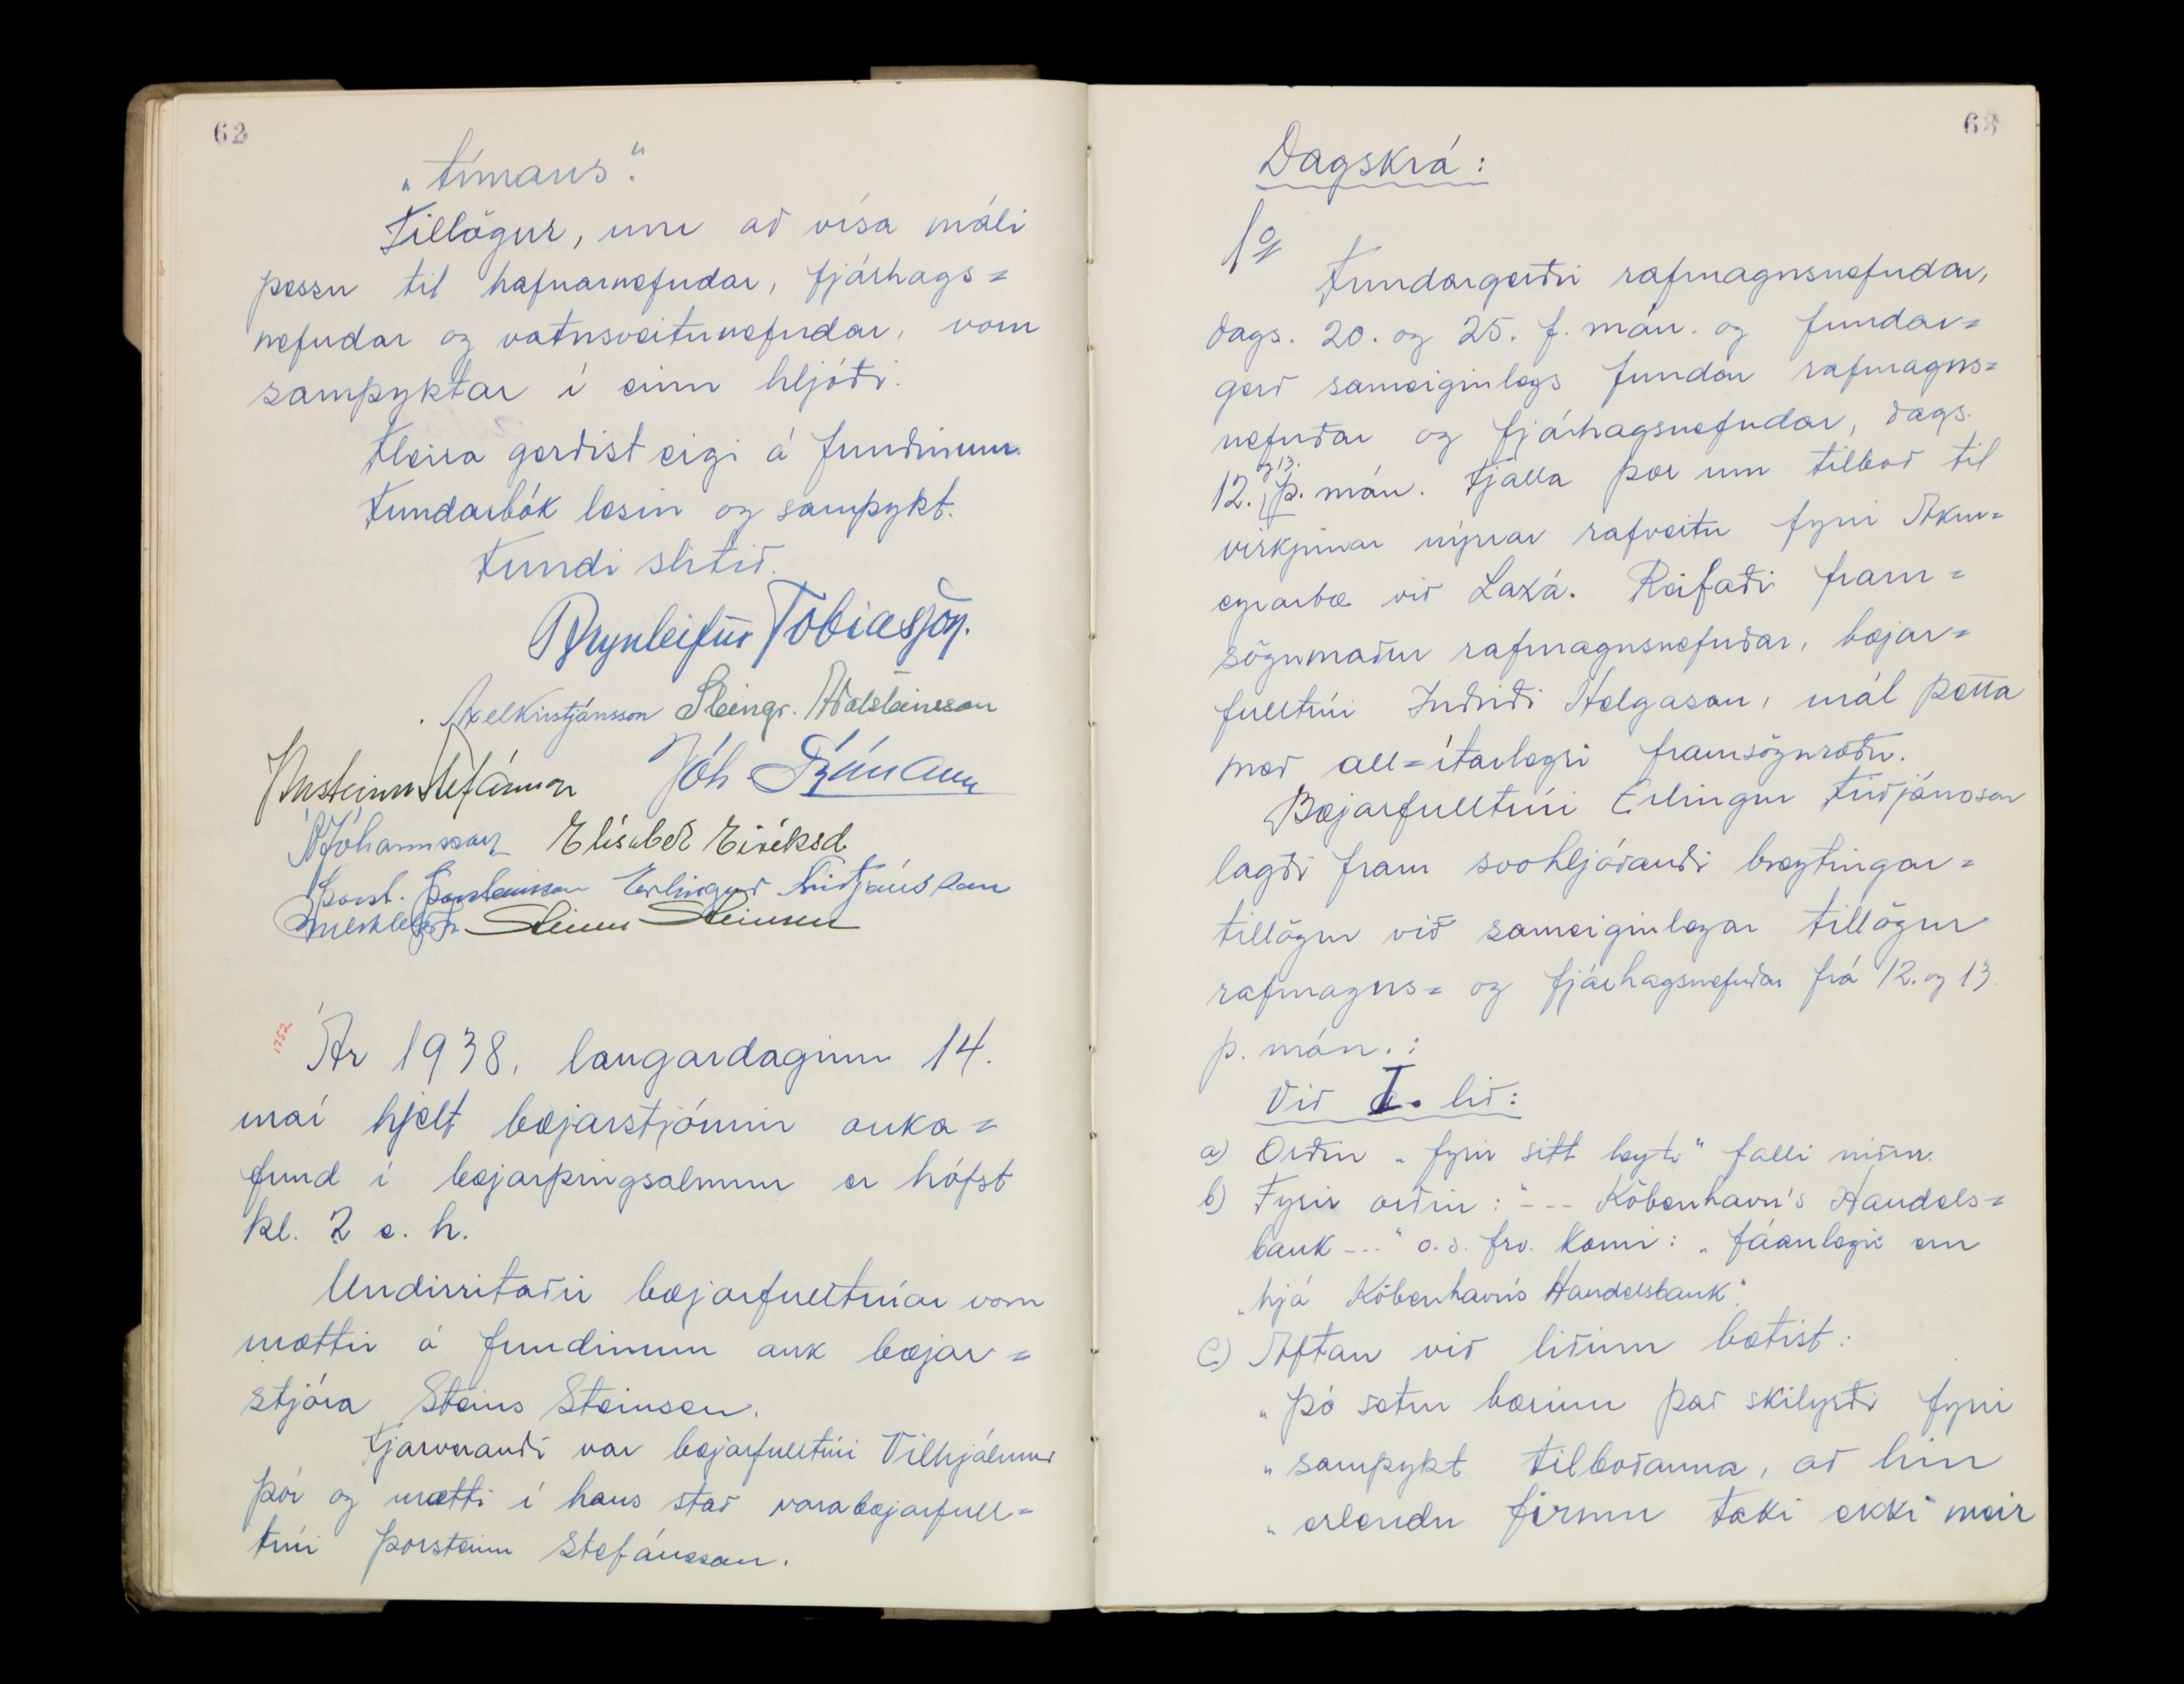 62
„tímans“.
Tillögur, um að vísa máli
þessu til hafnarnefndar, fjárhags=
nefndar og vatnsveitunefndar, voru
samþyktar í einu hljóði.
Fleira gerðist eigi á fundinum.
Fundarbók lesin og samþykt.
Fundi slitið.
Brynleifur Tobiasson.
Axel Kristjánsson Steingr. Aðalsteinsson
Þorsteinn Stefánsson Jóh Frímann
Jóhannsson Elísabet Eiríksd.
Þorst. Þorsteinsson Erlingur Friðjónsson
Steinn Steinsen
1752
Ár 1938, laugardaginn 14.
maí hjelt bæjarstjórnin auka=
fund í bæjarþingsalnum er hófst
kl. 2 e. h.
Undirritaðir bæjarfulltrúar voru
mættir á fundinum auk bæjar=
stjóra Steins Steinsen.
Fjarverandi var bæjarfulltrúi Vilhjálmur
Þór og mætti í hans stað varabæjarfull=
trúi Þorsteinn Stefánsson.
63
Dagskrá:
1º
Fundargerðir rafmagnsnefndar,
dags. 20. og 25. f. mán. og fundar=
gerð sameiginlegs fundar rafmagns=
nefndar og fjárhagsnefndar, dags.
12. og 13. þ. mán. Fjalla þær um tilboð til
virkjunar nýrrar rafveitu fyrir Akur=
eyrarbæ við Laxá. Reifaði fram=
sögumaður rafmagnsnefndar, bæjar=
fulltrúi Indriði Helgason, mál þetta
með all=ítarlegri framsöguræðu.
Bæjarfulltrúi Erlingur Friðjónsson
lagði fram svohljóðandi breytingar=
tillögur við sameiginlegar tillögur
rafmagns= og fjárhagsnefndar frá 12. og 13.
þ. mán.:
Við I. lið:
a) Orðin „fyrir sitt leyti“ falli niður.
b) Fyrir orðin: "--- Köbenhavn's Handels=
bank ---" o. s. frv. komi: „fáanlegir eru
„hjá Köbenhavns Handelsbank“.
c) Aftan við liðinn bætist:
„Þó setur bærinn það skilyrði fyrir
„samþykt tilboðanna, að hin
„erlendu firmu taki ekki meir